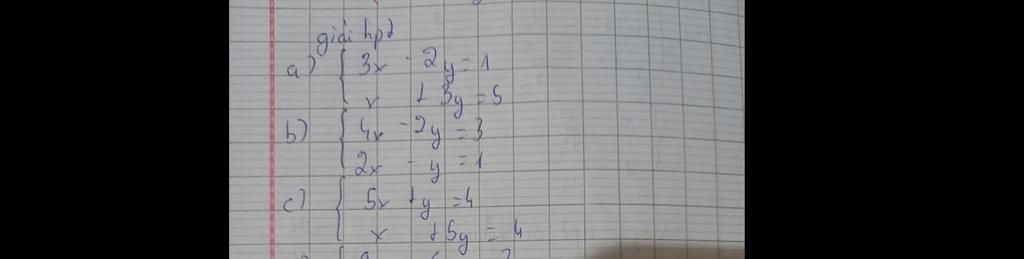 giải hpt
a) { 3x - 2y = 1
x + 3y = 5
b) { 4x - 2y = 3
2x - y = 1
c) { 5x + y = 4
x + 5y = 4